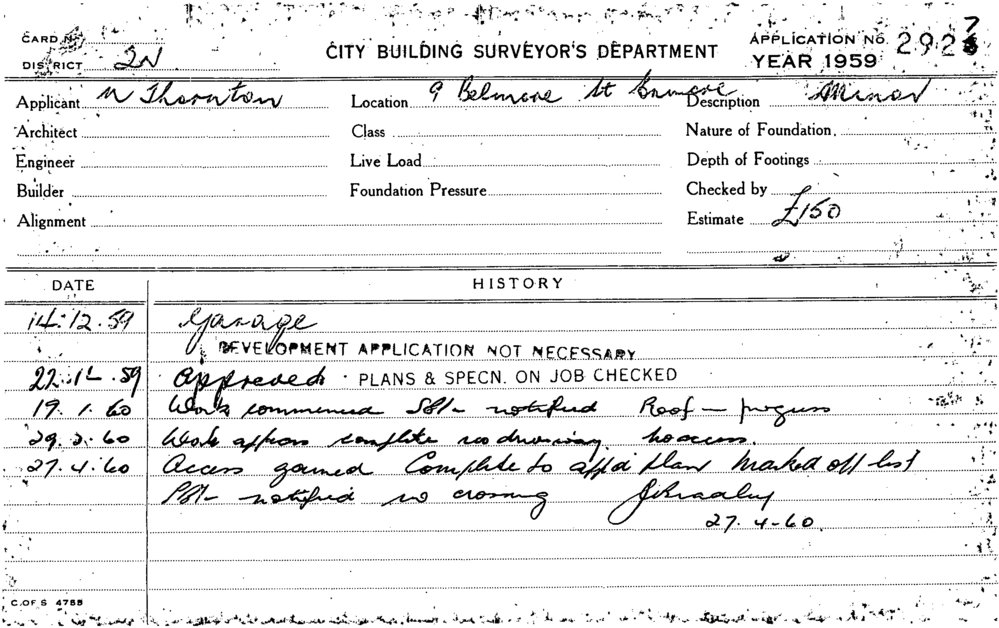 CARD No.
DISTRICT 2N
CITY BUILDING SURVEYOR'S DEPARTMENT
APPLICATION No. 2927
YEAR 1959
Applicant N Thornton
Location 9 Belmore St Enmore
Description Minor
Architect
Class
Nature of Foundation
Engineer
Live Load
Depth of Footings
Builder
Foundation Pressure
Checked by
Alignment
Estimate £150
DATE
HISTORY
14.12.59 Garage
DEVELOPMENT APPLICATION NOT NECESSARY
22.12.59 Approved PLANS & SPECN. ON JOB CHECKED
19.1.60 Work commenced notified Roof in progress
29.2.60 Work appears complete no driveway no access.
27.4.60 Access gained Complete to app'd plan Marked off list
notified no crossing J Bradley
27.4.60
C. OF S 4755